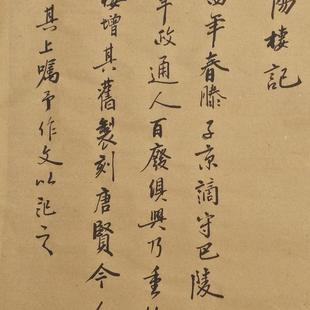 陽樓記
四年春滕子京謫守巴陵
年政通人百廢俱興乃重
樓增其舊製刻唐賢今
其上囑予作文以記之